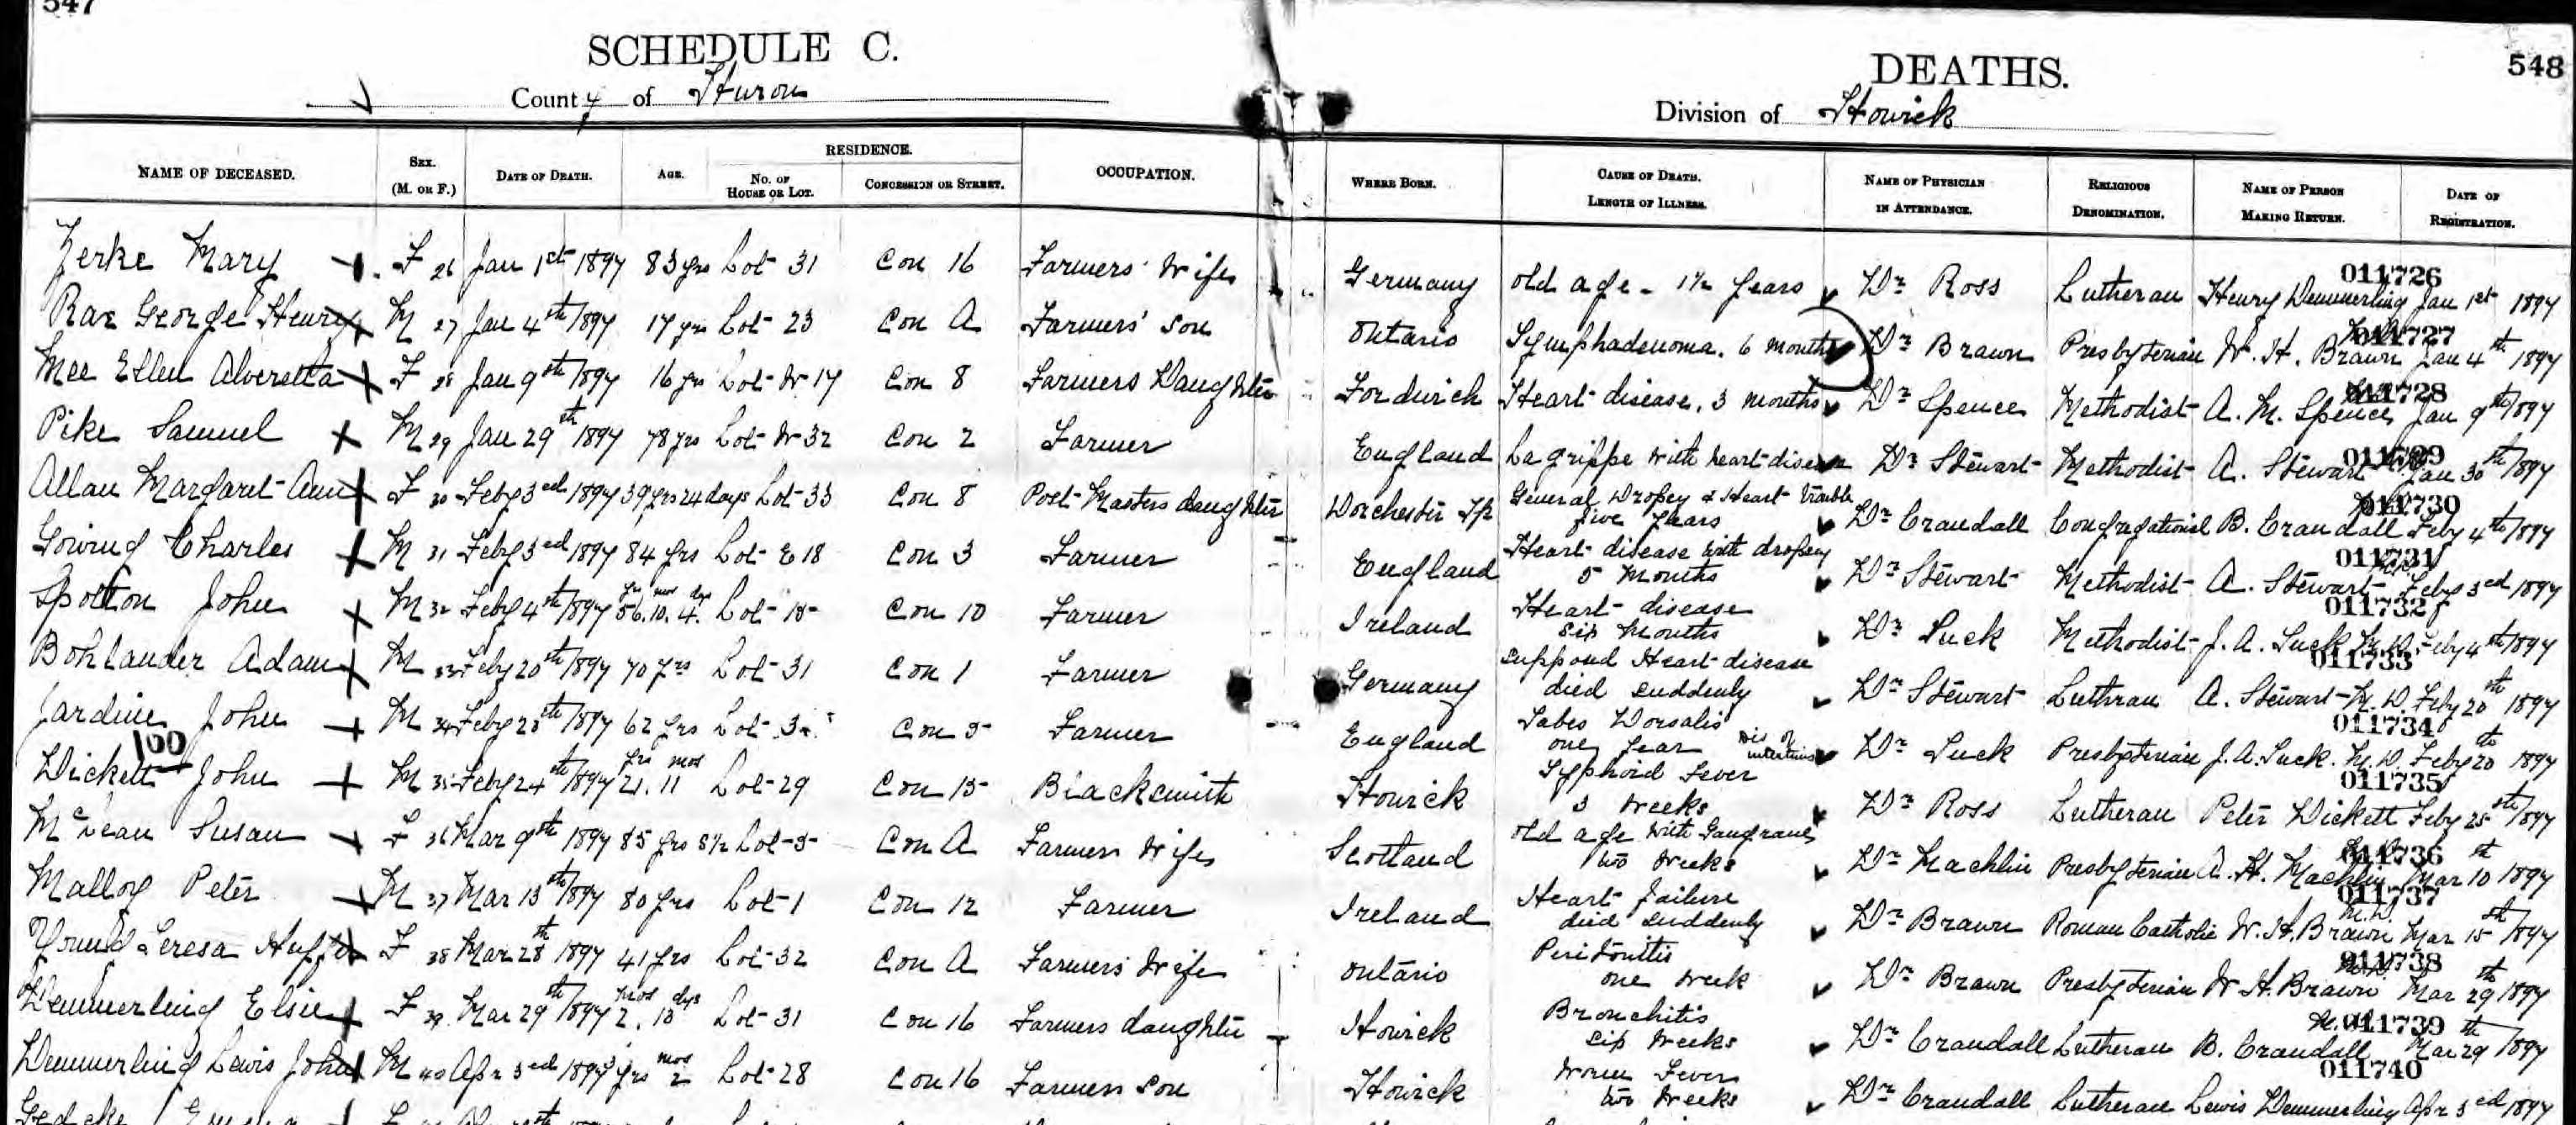 547
SCHEDULE C.
County of Huron
DEATHS.
548
Division of Howick
NAME OF DECEASED. SEX. (M. OR F.) DATE OF DEATH. AGE. RESIDENCE. No. OF HOUSE OR LOT. CONCESSION OR STREET. OCCUPATION. WHERE BORN. CAUSE OF DEATH. LENGTH OF ILLNESS. NAME OF PHYSICIAN IN ATTENDANCE. RELIGIOUS DENOMINATION. NAME OF PERSON MAKING RETURN. DATE OF REGISTRATION.
Zerke Mary F 26 Jan 1st 1897 83 yrs Lot 31 Con 16 Farmers Wife Germany old age - 1½ years Dr Ross Lutheran Henry Demmerling Jan 1st 1897 011726
Rae George Henry M 27 Jan 4th 1897 17 yrs Lot 23 Con A Farmers' son Ontario Lymphadenoma. 6 months Dr Brawn Presbyterian W. H. Brawn Jan 4th 1897 011727
Mee Ellen Alveretta F 28 Jan 9th 1897 16 yrs Lot N 17 Con 8 Farmers Daughter Fordwich Heart disease, 3 months Dr Spence Methodist A. M. Spence Jan 9th 1897 011728
Pike Samuel M 29 Jan 29th 1897 78 yrs Lot N 32 Con 2 Farmer England La grippe with heart disease Dr Stewart Methodist A. Stewart Jan 30th 1897 011729
Allan Margaret Ann F 30 Feby 3ed 1897 39 yrs 24 days Lot 33 Con 8 Post Masters daughter Dorchester Tp General Dropsy & Heart trouble five years Dr Crandall Congregational B. Crandall Feby 4th 1897 011730
Gowing Charles M 31 Feby 3ed 1897 84 yrs Lot E 18 Con 3 Farmer England Heart disease with dropsy 5 months Dr Stewart Methodist A. Stewart Feby 3ed 1897 011731
Spotton John M 32 Feby 4th 1897 yrs mos dys 56. 10. 4. Lot 15 Con 10 Farmer Ireland Heart disease six months Dr Tuck Methodist J. A. Tuck M.D. Feby 4th 1897 011732
Bohlander Adam M 33 Feby 20th 1897 70 yrs Lot 31 Con 1 Farmer Germany supposd Heart disease died suddenly Dr Stewart Luthran A. Stewart M.D. Feby 20th 1897 011733
Jardine John M 34 Feby 28th 1897 62 yrs Lot Con 5 Farmer England Tabes Dorsalis one year Dr Tuck Presbyterian J. A. Tuck. M.D. Feby 20th 1897 011734
100
Dickett John M 35 Feby 24th 1897 yrs mos 21. 11 Lot 29 Con 15 Blacksmith Howick Typhoid Fever 3 weeks dis of intestines Dr Ross Lutheran Peter Dickett Feby 25th 1897 011735
McVean Susan F 36 Mar 9th 1897 85 yrs Lot 5 Con A Farmers Wife Scotland old age with Gangrane two weeks Dr Machlin Presbyterian A. H. Machlin Mar 10th 1897 011736
Malloy Peter M 37 Mar 13th 1897 80 yrs Lot 1 Con 12 Farmer Ireland Heart failure died suddenly Dr Brawn Roman Catholic W. H. Brawn M.D. Mar 15th 1897 011737
Young Teresa F 38 Mar 28th 1897 41 yrs Lot 32 Con A Farmers Wife Ontario Peritonitis one week Dr Brawn Presbyterian W. H. Brawn Mar 29th 1897 011738
Demmerling Elsie F 39 Mar 29th 1897 mos dys 2. 13 Lot 31 Con 16 Farmers daughter Howick Bronchitis six weeks Dr Crandall Lutheran B. Crandall M.D. Mar 29th 1897 011739
Demmerling Lewis John M 40 Apr 3ed 1897 3 yrs mos 2 Lot 28 Con 16 Farmers son Howick Worm Fever two weeks Dr Crandall Lutheran Lewis Demmerling Apr 3ed 1897 011740